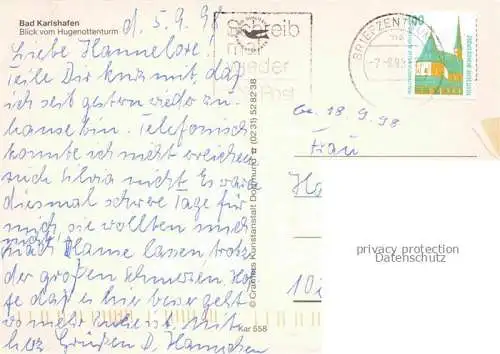 Bad Karlshafen
Blick vom Hugenottenturm
d, 5. 9. 98
Liebe Hannelore!
Teile Dir kurz mit, daß
ich seit gestern wieder zu-
hause bin. Telefonisch
konnte ich nicht erreichen
auch Silvia nicht. Es waren
diesmal schwere Tage für
mich, sie wollten mich
nach Hause lassen, trotz
der großen Schmerzen. Hof-
fe daß es hier besser geht
Mit
herz. Grüßen D. Hannchen
Schreib
mal
wieder
Post
BRIEFZENTRUM
100
© Graphies Kunstanstalt Dortmund ☎ (0231) 52 82 38
Kar 558
be. 18. 9. 98
Frau
privacy protection
Datenschutz